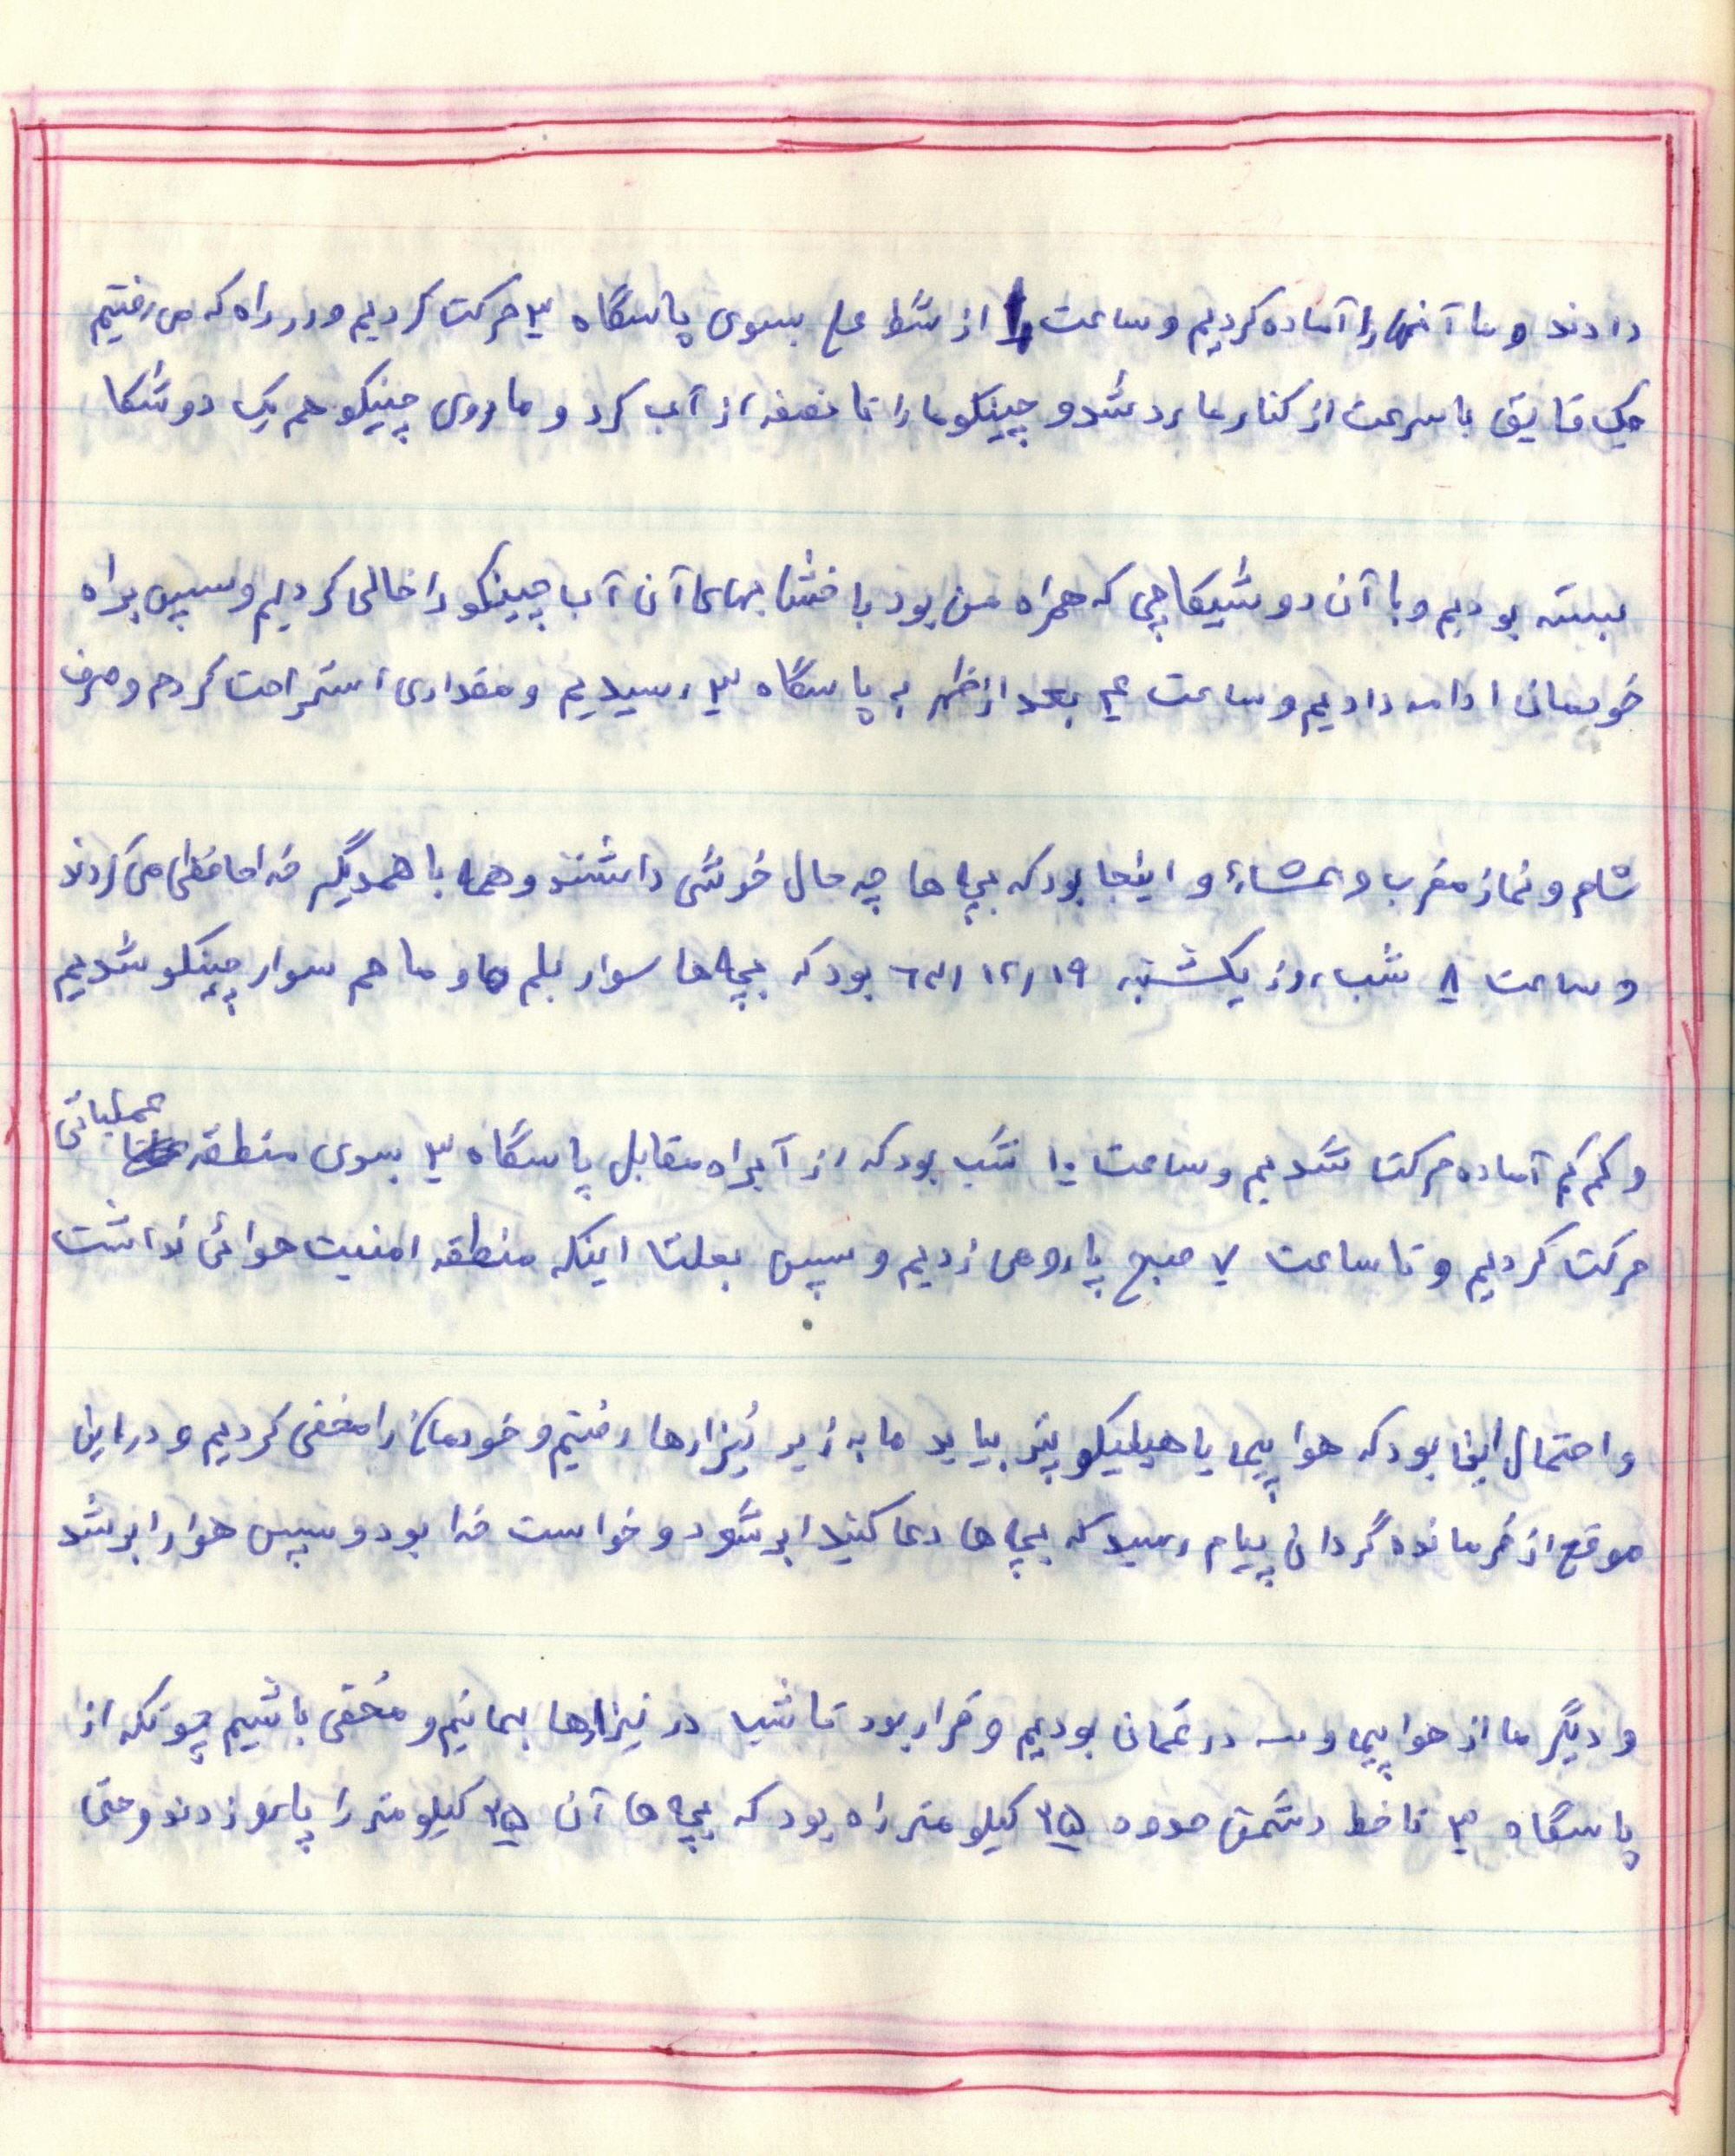 دادند و ما آنها را آماده کردیم و ساعت از شط علی بسوی پاسگاه ۳ حرکت کردیم و در راه که می رفتیم
یک قایق با سرعت از کنار ما رد شد و چینکو ما را تا نصفه از آب کرد و ما روی چینکو هم یک دوشکا
بسته بودیم و با آن دوشیکاچی که همراه من بود با خشابهای آن آب چینکو را خالی کردیم و سپس براه
خویمان ادامه دادیم و ساعت ۴ بعد از ظهر به پاسگاه ۳ رسیدیم و مقداری استراحت کردم و صرف
شام و نماز مغرب و عشاء و اینجا بود که بچه ها چه حال خوشی داشتند و همه با همدیگر خداحافظی می کردند
و ساعت ۸ شب روز یکشنبه ۶۳/۱۲/۱۹ بود که بچه ها سوار بلم ها و ما هم سوار چینکو شدیم
و کم کم آماده حرکت شدیم و ساعت ۱۰ شب بود که از آبراه مقابل پاسگاه ۳ بسوی منطقه عملیاتی
حرکت کردیم و تا ساعت ۷ صبح پارو می زدیم و سپس بعلت اینکه منطقه امنیت هوائی نداشت
و احتمال این بود که هواپیما یا هیلیکوپتر بیاید ما به زیر نیزارها رفتیم و خودمان را مخفی کردیم و در این
موقع از فرمانده گردان پیام رسید که بچه ها دعا کنید ابر شود و خواست خدا بود و سپس هوا را ابر شد
و دیگر ما از هواپیما و در عمان بودیم و قرار بود تا شب در نیزارها بمانیم و مخفی باشیم چونکه از
پاسگاه ۳ تا خط دشمن حدود ۳۵ کیلومتر راه بود که بچه ها آن ۳۵ کیلومتر را پارو زدند و حتی